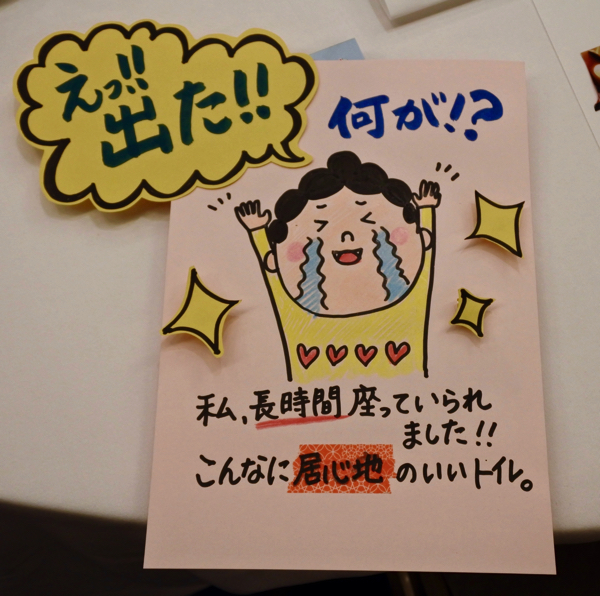 えっ!!
出た!!
何が!?
私、長時間座っていられ
ました!!
こんなに居心地のいいトイレ。